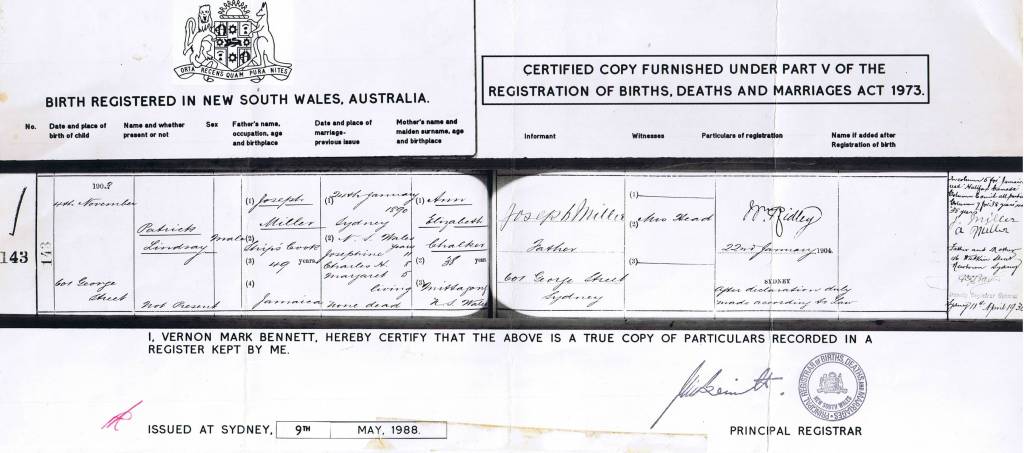 ORTA RECENS QUAM PURA NITES
BIRTH REGISTERED IN NEW SOUTH WALES, AUSTRALIA.
CERTIFIED COPY FURNISHED UNDER PART V OF THE
REGISTRATION OF BIRTHS, DEATHS AND MARRIAGES ACT 1973.
No.
Date and place of
birth of child
Name and whether
present or not
Sex
Father's name,
occupation, age
and birthplace
Date and place of
marriage-
previous issue
Mother's name and
maiden surname, age
and birthplace
Informant
Witnesses
Particulars of registration
Name if added after
Registration of birth
143
143
1903
4th November
601 George
Street
Patrick
Lindsay
Not Present
male
(1) Joseph
Miller
(2) Ship's Cook
(3) 49 years
(4)
Jamaica
(1) 24th January
1890
Sydney
(2) N. S. Wales
Josephine 11
Charles H. 8
Margaret 5
living
none dead
(1) Ann
Elizabeth
Chalker
(2) 38 years
(3) Mittagong
N.S. Wales
Joseph Miller
Father
601 George Street
Sydney
(1)
(2) Mrs Head
(3)
Ridley
22nd January, 1904.
SYDNEY
After declaration duly
made according to Law
J. Miller
A Miller
Father and Mother
Sydney
Sydney 11th April
I, VERNON MARK BENNETT, HEREBY CERTIFY THAT THE ABOVE IS A TRUE COPY OF PARTICULARS RECORDED IN A
REGISTER KEPT BY ME.
PRINCIPAL REGISTRAR OF BIRTHS, DEATHS AND MARRIAGES
NEW SOUTH WALES
ISSUED AT SYDNEY, 9TH MAY, 1988.
PRINCIPAL REGISTRAR